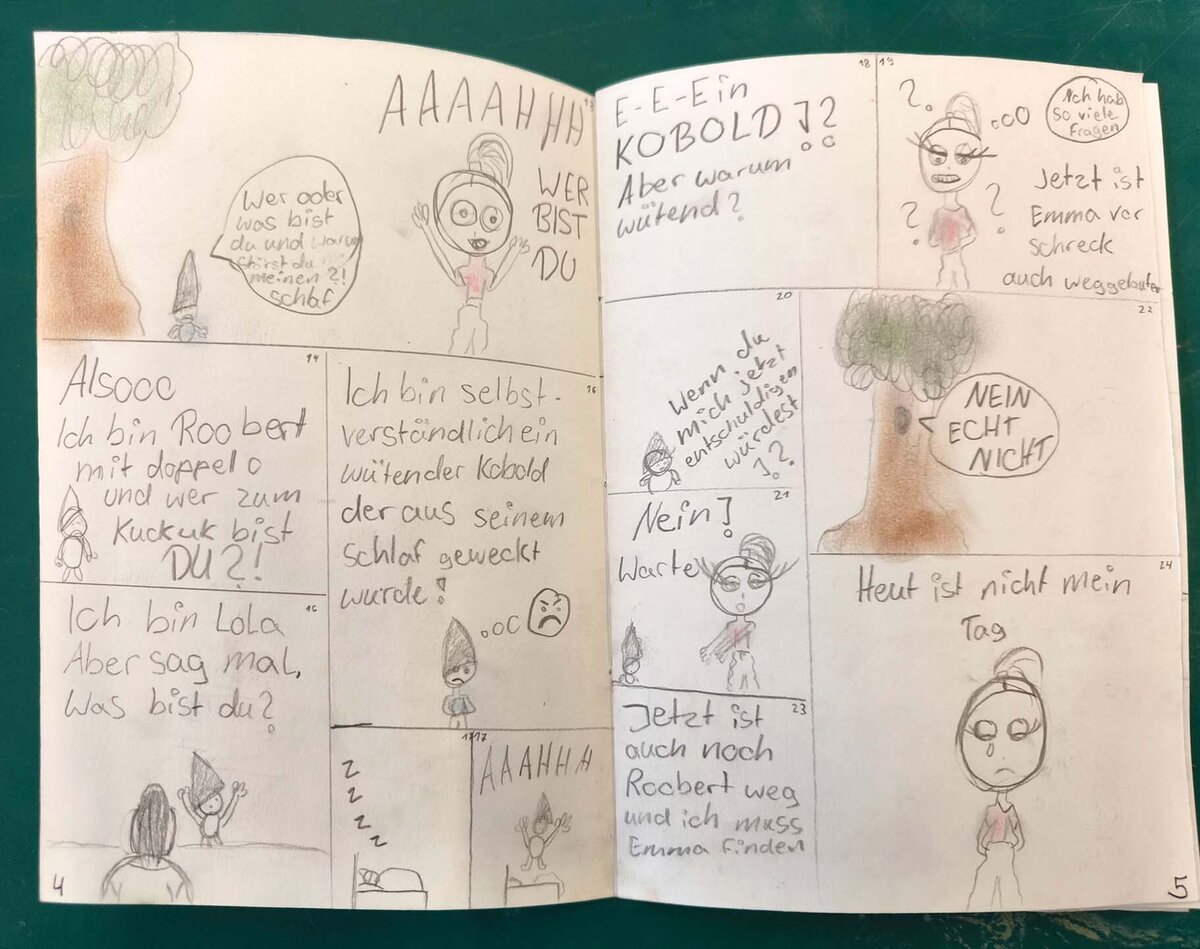 AAAAHHH
13
WER
BIST
DU
Wer oder
was bist
du und warum
störst du
meinen ?!
schlaf
14
Alsooo
Ich bin Roobert
mit doppel o
und wer zum
Kuckuk bist
DU?!
Ich bin Lola
Aber sag mal,
Was bist du?
16
Ich bin selbst-
verständlich ein
wütender Kobold
der aus seinem
Schlaf geweckt
wurde!
Z
Z
Z
Z
Z
17
AAAHHH
4
18
E-E-Ein
KOBOLD!?
Aber warum
wütend?
19
?
?
?
Ich hab
so viele
Fragen
Jetzt ist
Emma vor
schreck
auch weggelaufen
20
Wenn du
mich jetzt
entschuldigen
würdest
!?
21
Nein!
Warte
22
NEIN
ECHT
NICHT
23
Jetzt ist
auch noch
Roobert weg
und ich muss
Emma finden
24
Heut ist nicht mein
Tag
5